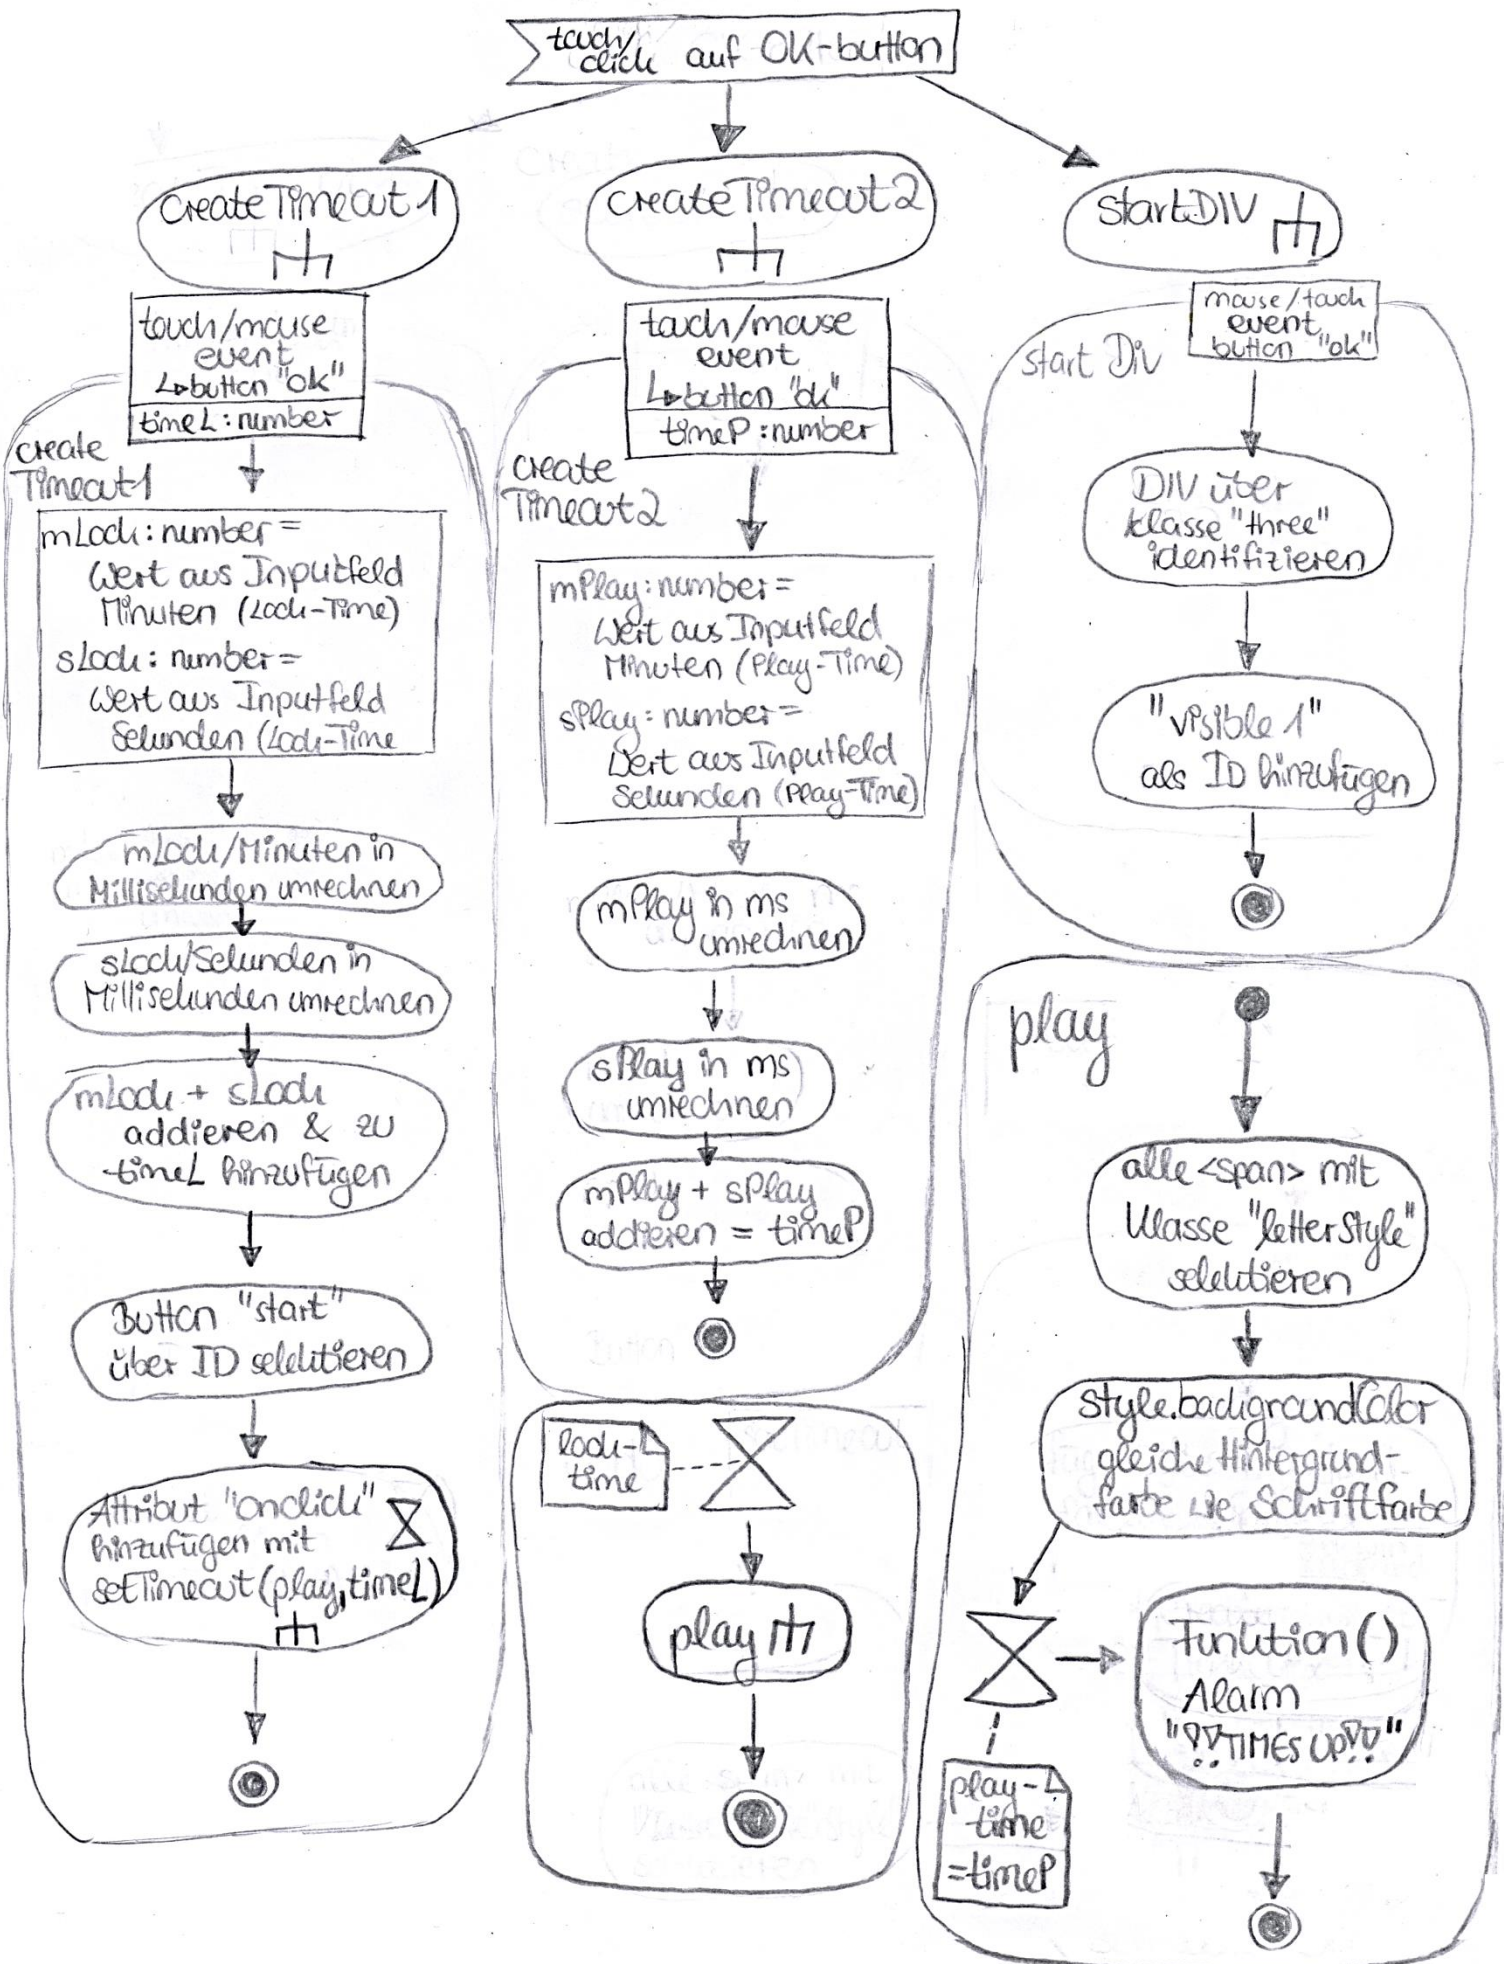 touch/
click auf OK-button
createTimeout1
createTimeout2
startDIV
touch/mouse
event
↳button "ok"
timeL: number
create
Timeout1
mLock: number =
Wert aus Inputfeld
Minuten (Lock-Time)
sLock: number =
Wert aus Inputfeld
Sekunden (Lock-Time
mLock/Minuten in
Millisekunden umrechnen
sLock/Sekunden in
Millisekunden umrechnen
mLock + sLock
addieren & zu
timeL hinzufügen
Button "start"
über ID selektieren
Attribut "onclick"
hinzufügen mit
setTimeout(play,timeL)
touch/mouse
event
↳button "ok"
timeP: number
create
Timeout2
mPlay: number =
Wert aus Inputfeld
Minuten (Play-Time)
sPlay: number =
Wert aus Inputfeld
Sekunden (Play-Time)
mPlay in ms
umrechnen
sPlay in ms
umrechnen
mPlay + sPlay
addieren = timeP
lock-
time
play
mouse/touch
event
button "ok"
start Div
DIV über
klasse "three"
identifizieren
"visible1"
als ID hinzufügen
play
alle <span> mit
Klasse "letterStyle"
selektieren
style.backgroundColor
gleiche Hintergrund-
farbe wie Schriftfarbe
Funktion()
Alarm
"!!TIMES UP!!"
play-
time
=timeP